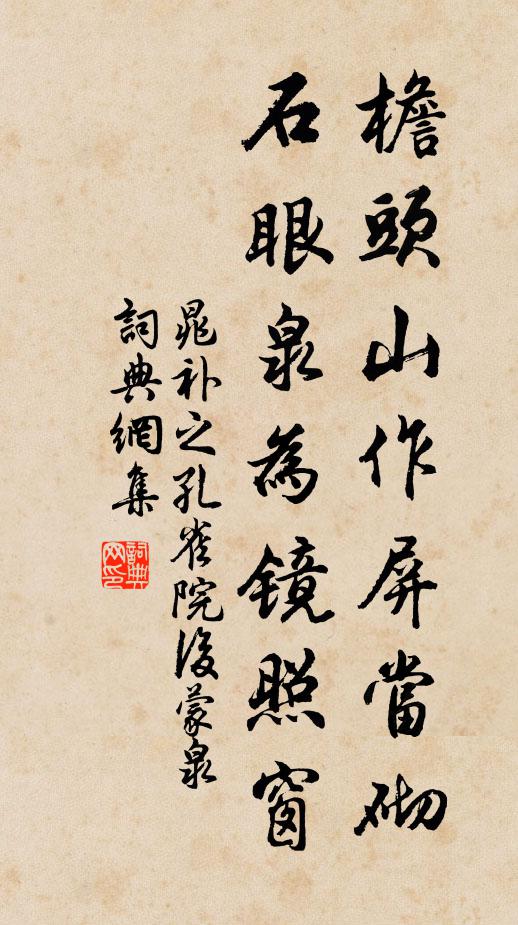 檐頭山作屏當砌
石眼泉為鏡照窗
晁補之孔雀院後蒙泉
詞典網集
詞典網印